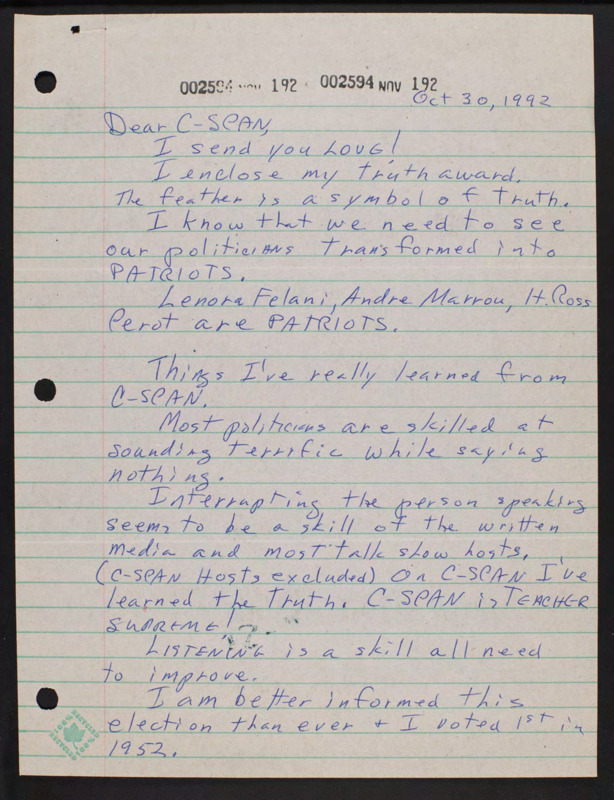 002594 NOV 192 002594 NOV 192
Oct 30, 1992
Dear C-SPAN,
I send you LOVE!
I enclose my truth award.
The feather is a symbol of truth.
I know that we need to see
our politicians transformed into
PATRIOTS.
Lenora Felani, Andre Marrou, H. Ross
Perot are PATRIOTS.
Things I've really learned from
C-SPAN.
Most politicians are skilled at
sounding terrific while saying
nothing.
Interrupting the person speaking
seems to be a skill of the written
media and most talk show hosts.
(C-SPAN Hosts excluded) On C-SPAN I've
learned the Truth. C-SPAN is TEACHER
SUPREME!
LISTENING is a skill all need
to improve.
I am better informed this
election than ever + I voted 1st in
1952.